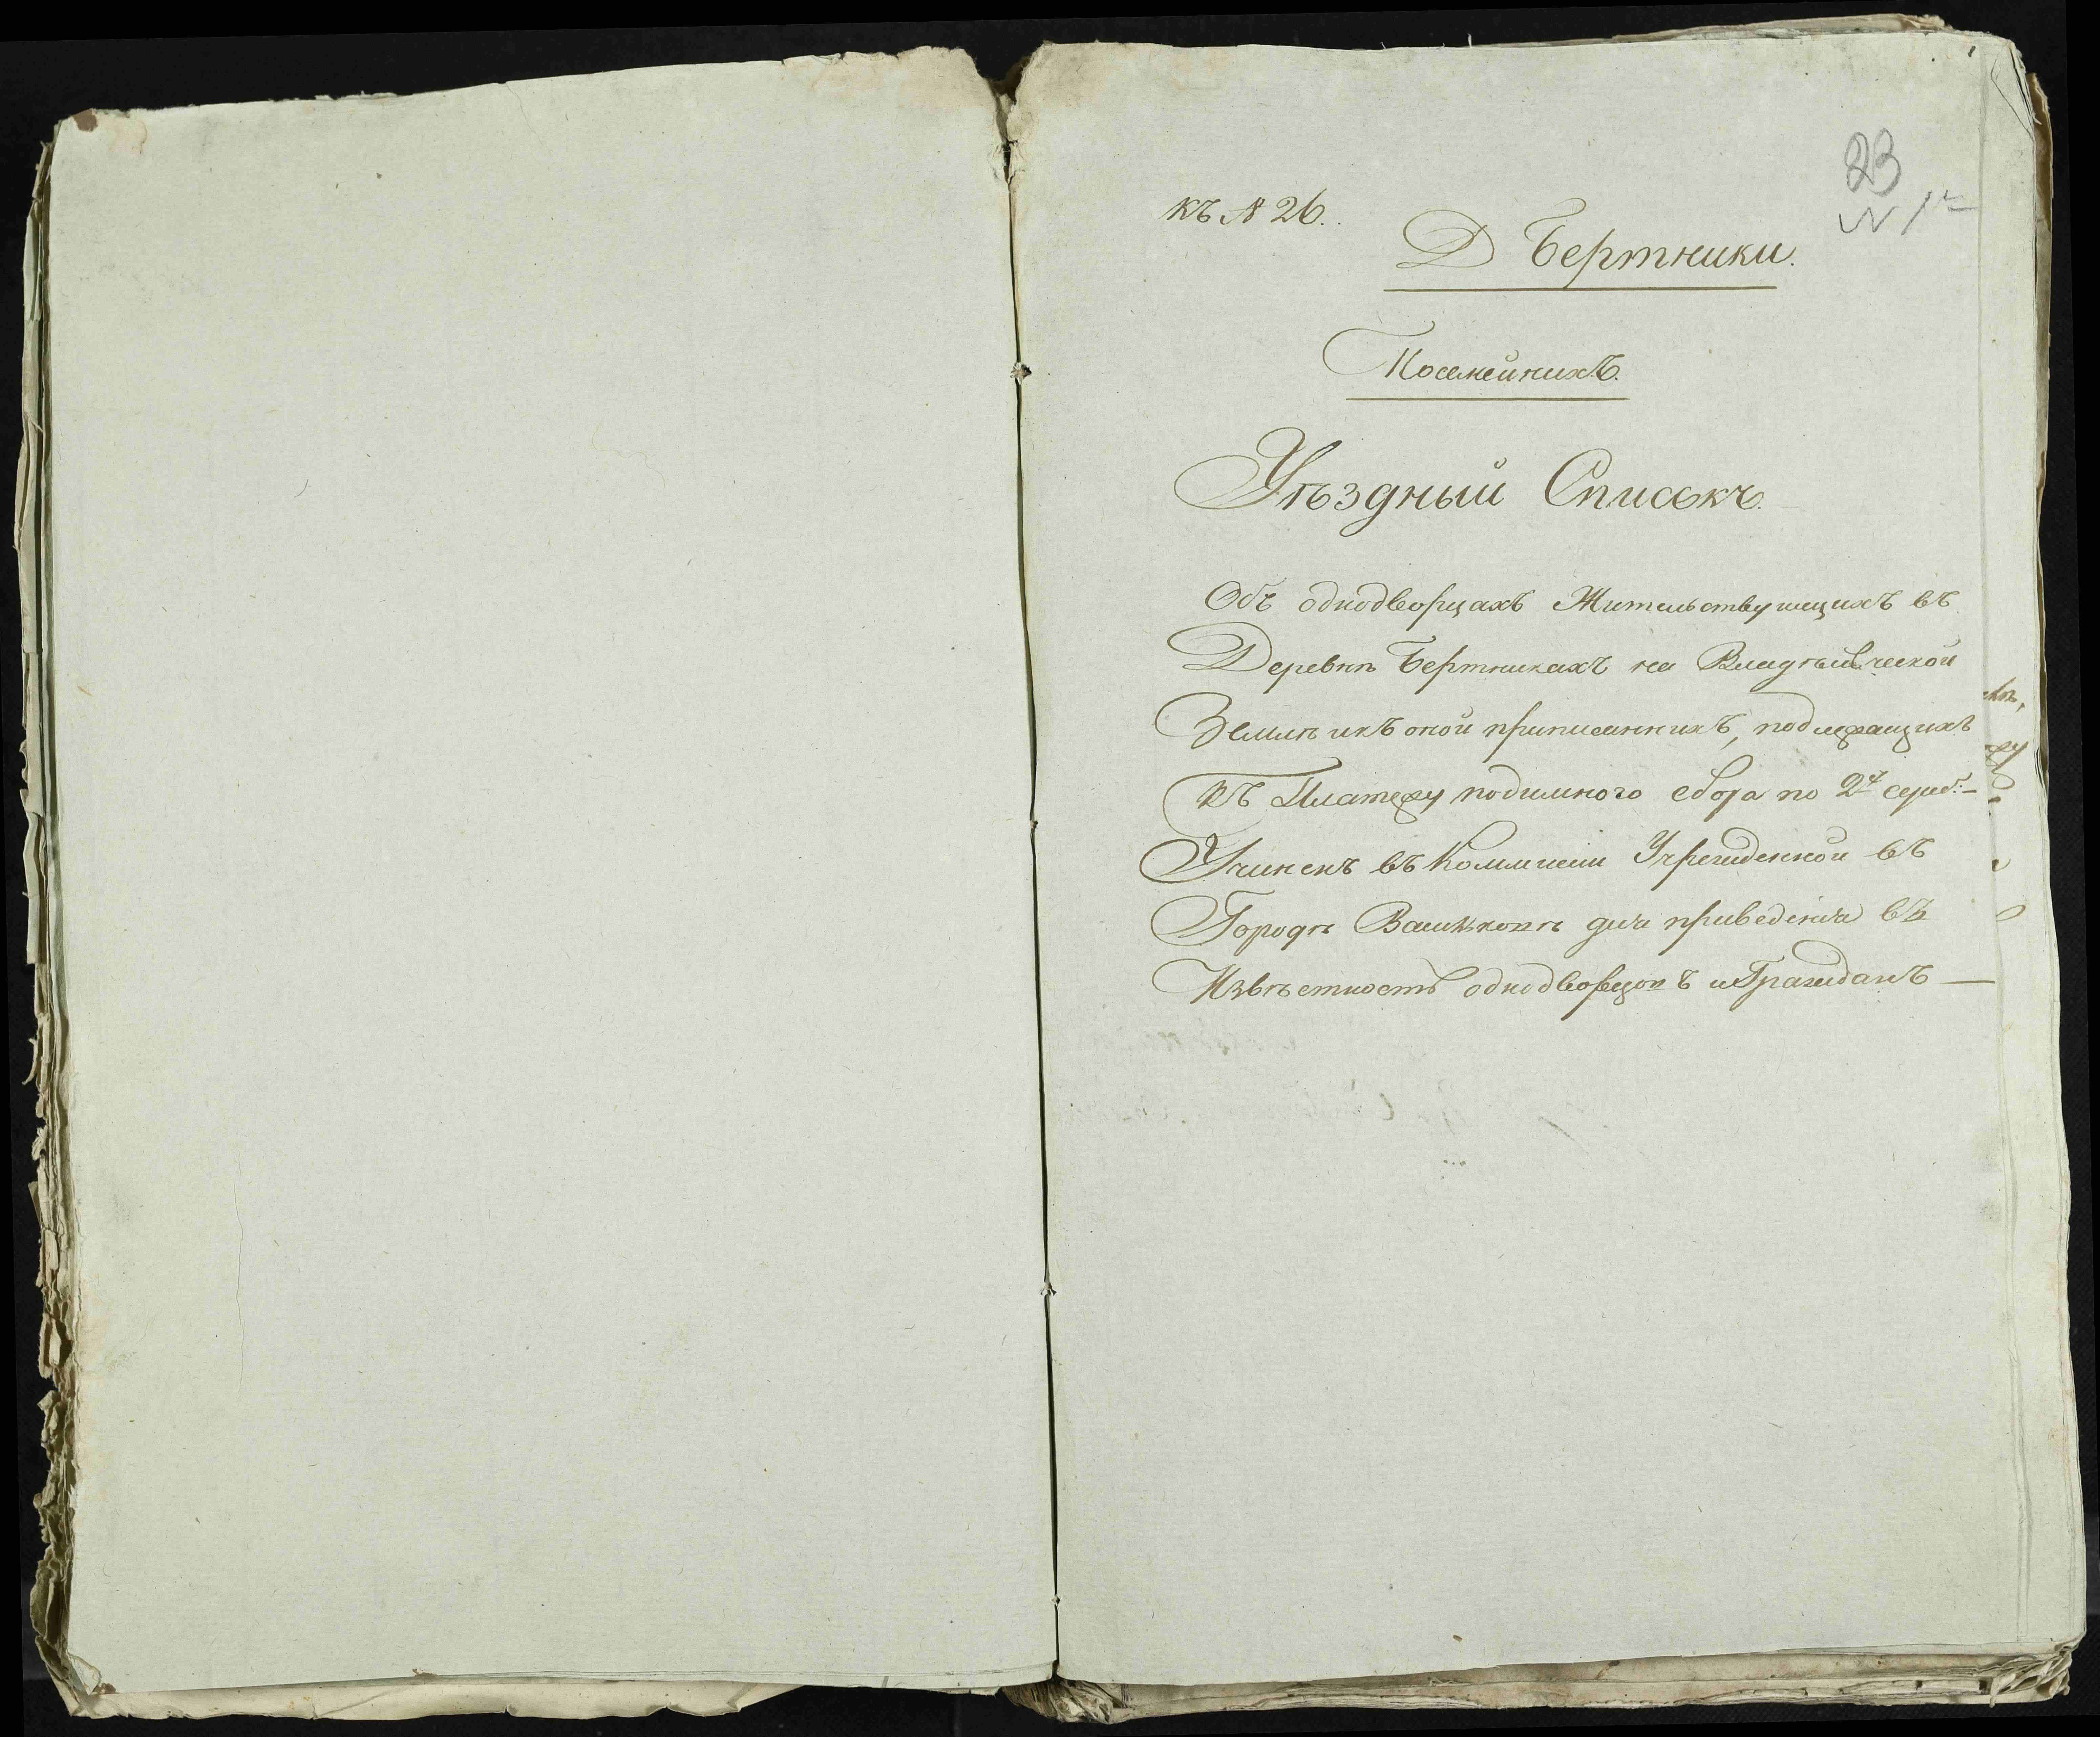 23
№ 1й
къ № 26.
Д Бертники.
Посемейнихъ.
Уѣздный Списокъ.
Объ однодворцахъ Жительствующихъ въ
Деревнѣ Бертникахъ на Владѣльческой
Землѣ икъ оной приписаннихъ, подлежащихъ
къ Платежу подимного сбора по 2 сереб:
Учиненъ въ Коммисіи Учрежденной въ
Городѣ для приведенія въ
Извѣстность однодворцовъ и Гражданъ —